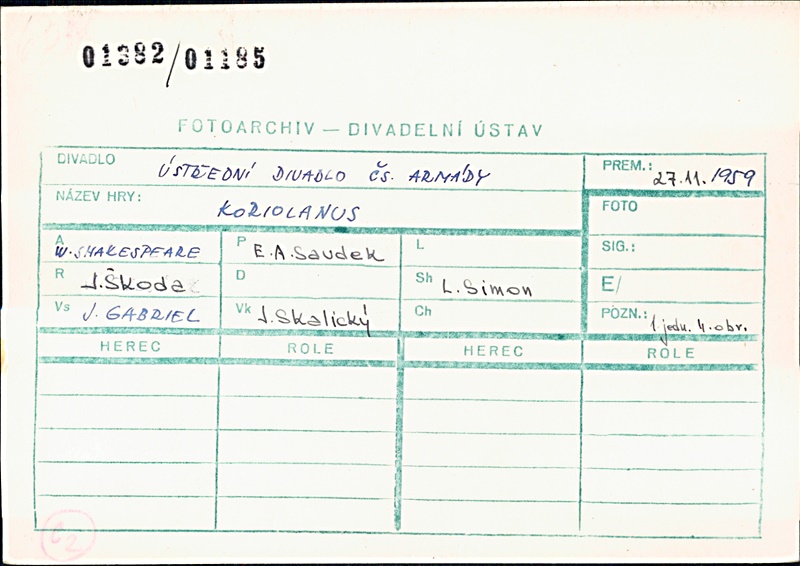 01382/01185
FOTOARCHIV — DIVADELNÍ ÚSTAV
DIVADLO ÚSTŘEDNÍ DIVADLO ČS. ARMÁDY PREM.: 27.11.1959
NÁZEV HRY: KORIOLANUS FOTO
A W. SHAKESPEARE P E.A.Saudek L SIG.:
R J.Škoda D Sh L.Simon E/
Vs J. GABRIEL Vk J.Skalický Ch POZN.: 1.jedn. 4.obr.
HEREC ROLE HEREC ROLE
62